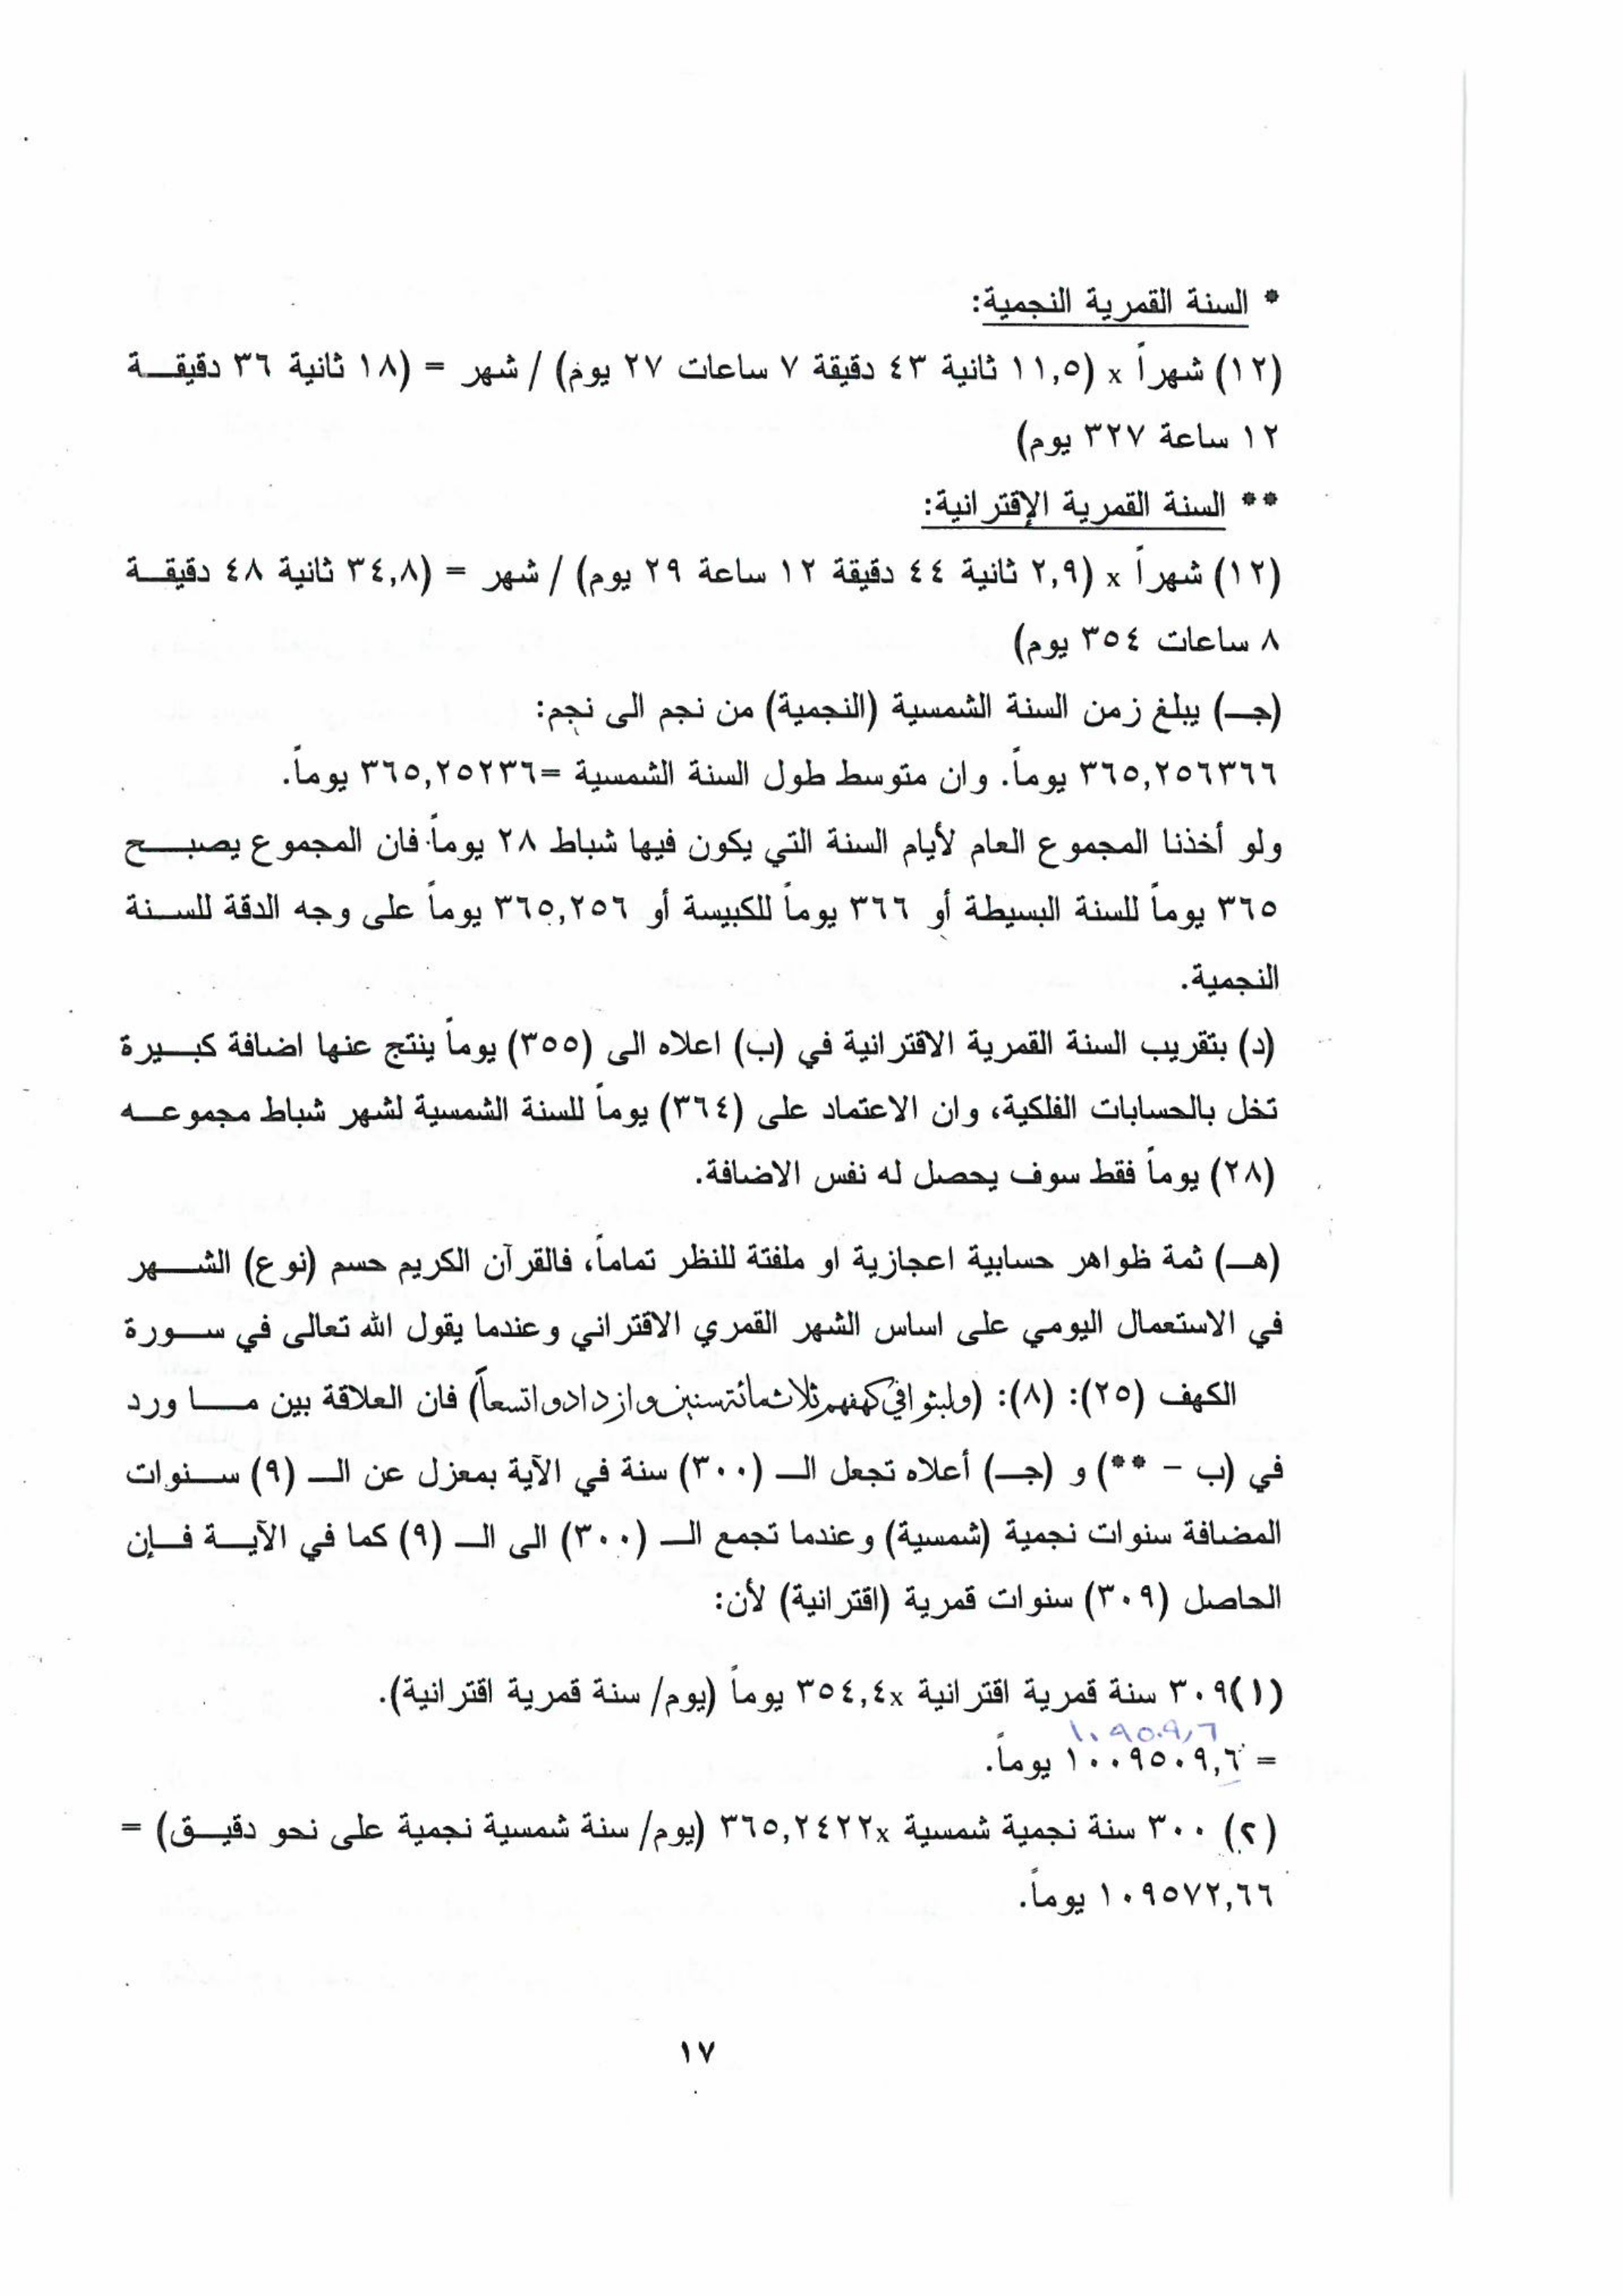 * السنة القمرية النجمية:
(١٢) شهراً x (١١,٥ ثانية ٤٣ دقيقة ٧ ساعات ٢٧ يوم) / شهر = (١٨ ثانية ٣٦ دقيقــة
١٢ ساعة ٣٢٧ يوم)
** السنة القمرية الإقترانية:
(١٢) شهراً x (٢,٩ ثانية ٤٤ دقيقة ١٢ ساعة ٢٩ يوم) / شهر = (٣٤,٨ ثانية ٤٨ دقيقــة
٨ ساعات ٣٥٤ يوم)
(جــ) يبلغ زمن السنة الشمسية (النجمية) من نجم الى نجم:
٣٦٥,٢٥٦٣٦٦ يوماً. وان متوسط طول السنة الشمسية =٣٦٥,٢٥٢٣٦ يوماً.
ولو أخذنا المجموع العام لأيام السنة التي يكون فيها شباط ٢٨ يوماً فان المجموع يصبــــح
٣٦٥ يوماً للسنة البسيطة أو ٣٦٦ يوماً للكبيسة أو ٣٦٥,٢٥٦ يوماً على وجه الدقة للســنة
النجمية.
(د) بتقريب السنة القمرية الاقترانية في (ب) اعلاه الى (٣٥٥) يوماً ينتج عنها اضافة كبــيرة
تخل بالحسابات الفلكية، وان الاعتماد على (٣٦٤) يوماً للسنة الشمسية لشهر شباط مجموعــه
(٢٨) يوماً فقط سوف يحصل له نفس الاضافة.
(هــ) ثمة ظواهر حسابية اعجازية او ملفتة للنظر تماماً، فالقرآن الكريم حسم (نوع) الشــــهر
في الاستعمال اليومي على اساس الشهر القمري الاقتراني وعندما يقول الله تعالى في ســورة
الكهف (٢٥): (٨): (ولبثوا في كهفهم ثلاث مائة سنين وازدادوا تسعاً) فان العلاقة بين مـــا ورد
في (ب - **) و (جــ) أعلاه تجعل الــ (٣٠٠) سنة في الآية بمعزل عن الــ (٩) ســنوات
المضافة سنوات نجمية (شمسية) وعندما تجمع الــ (٣٠٠) الى الــ (٩) كما في الآيــة فــإن
الحاصل (٣٠٩) سنوات قمرية (اقترانية) لأن:
(١)٣٠٩ سنة قمرية اقترانية x٣٥٤,٤ يوماً (يوم/ سنة قمرية اقترانية).
١٠٩٥٠٩,٦
= ١٠٠٩٥٠٩,٦ يوماً.
(٢) ٣٠٠ سنة نجمية شمسية x٣٦٥,٢٤٢٢ (يوم/ سنة شمسية نجمية على نحو دقيــق) =
١٠٩٥٧٢,٦٦ يوماً.
١٧